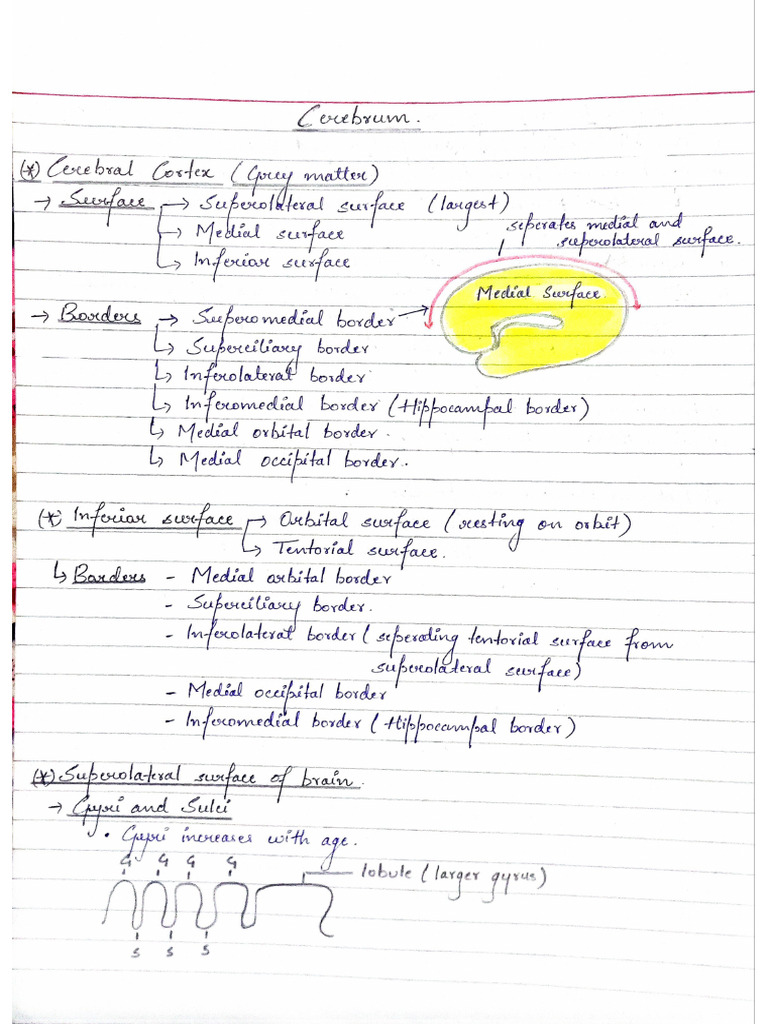 Cerebrum.
(*) Cerebral Cortex (Grey matter)
→ Surface → Superolateral surface (largest)
→ Medial surface
→ Inferior surface
seperates medial and
superolateral surface.
Medial Surface.
→ Borders → Superomedial border
→ Superciliary border
→ Inferolateral border
→ Inferomedial border (Hippocampal border)
→ Medial orbital border
→ Medial occipital border.
(*) Inferior surface → Orbital surface (resting on orbit)
→ Tentorial surface.
↳ Borders - Medial orbital border
- Superciliary border.
- Inferolateral border (seperating tentorial surface from
superolateral surface)
- Medial occipital border
- Inferomedial border (Hippocampal border)
(*) Superolateral surface of brain.
→ Gyri and Sulci
• Gyri increases with age.
G G G G
lobule (larger gyrus)
S S S